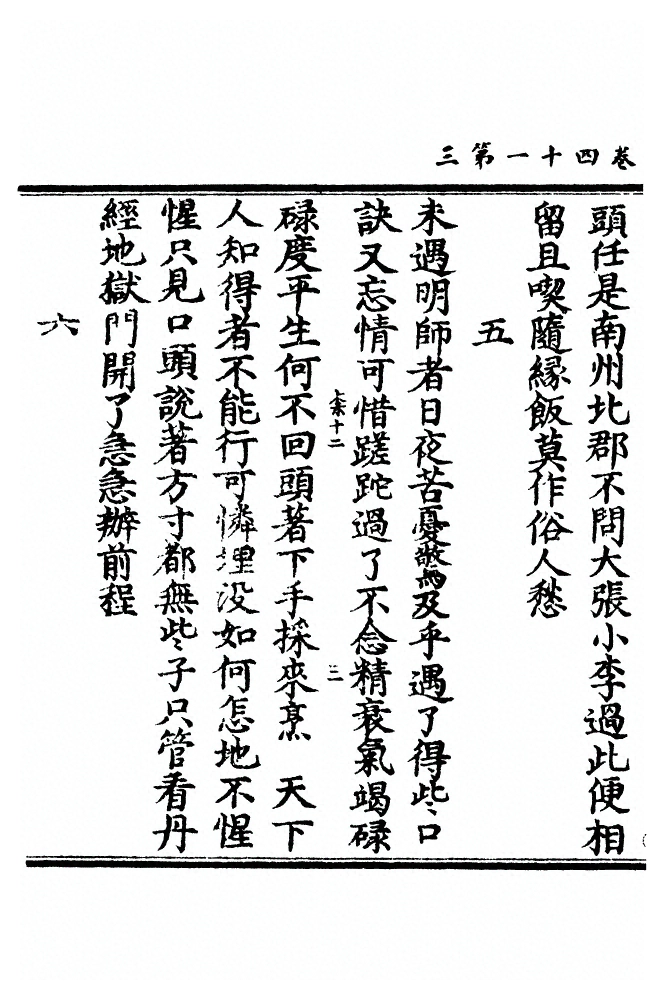 卷四十一第三
頭任是南州北郡不問大張小李過此便相
留且喫隨緣飯莫作俗人愁
五
未遇明師者日夜苦憂驚及乎遇了得些口
訣又忘情可惜蹉跎過了不念精衰氣竭碌
上朱十二
三
碌度平生何不回頭著下手採來烹 天下
人知得者不能行可憐埋没如何怎地不惺
惺只見口頭說著方寸都無些子只管看丹
經地獄門開了急急辦前程
六